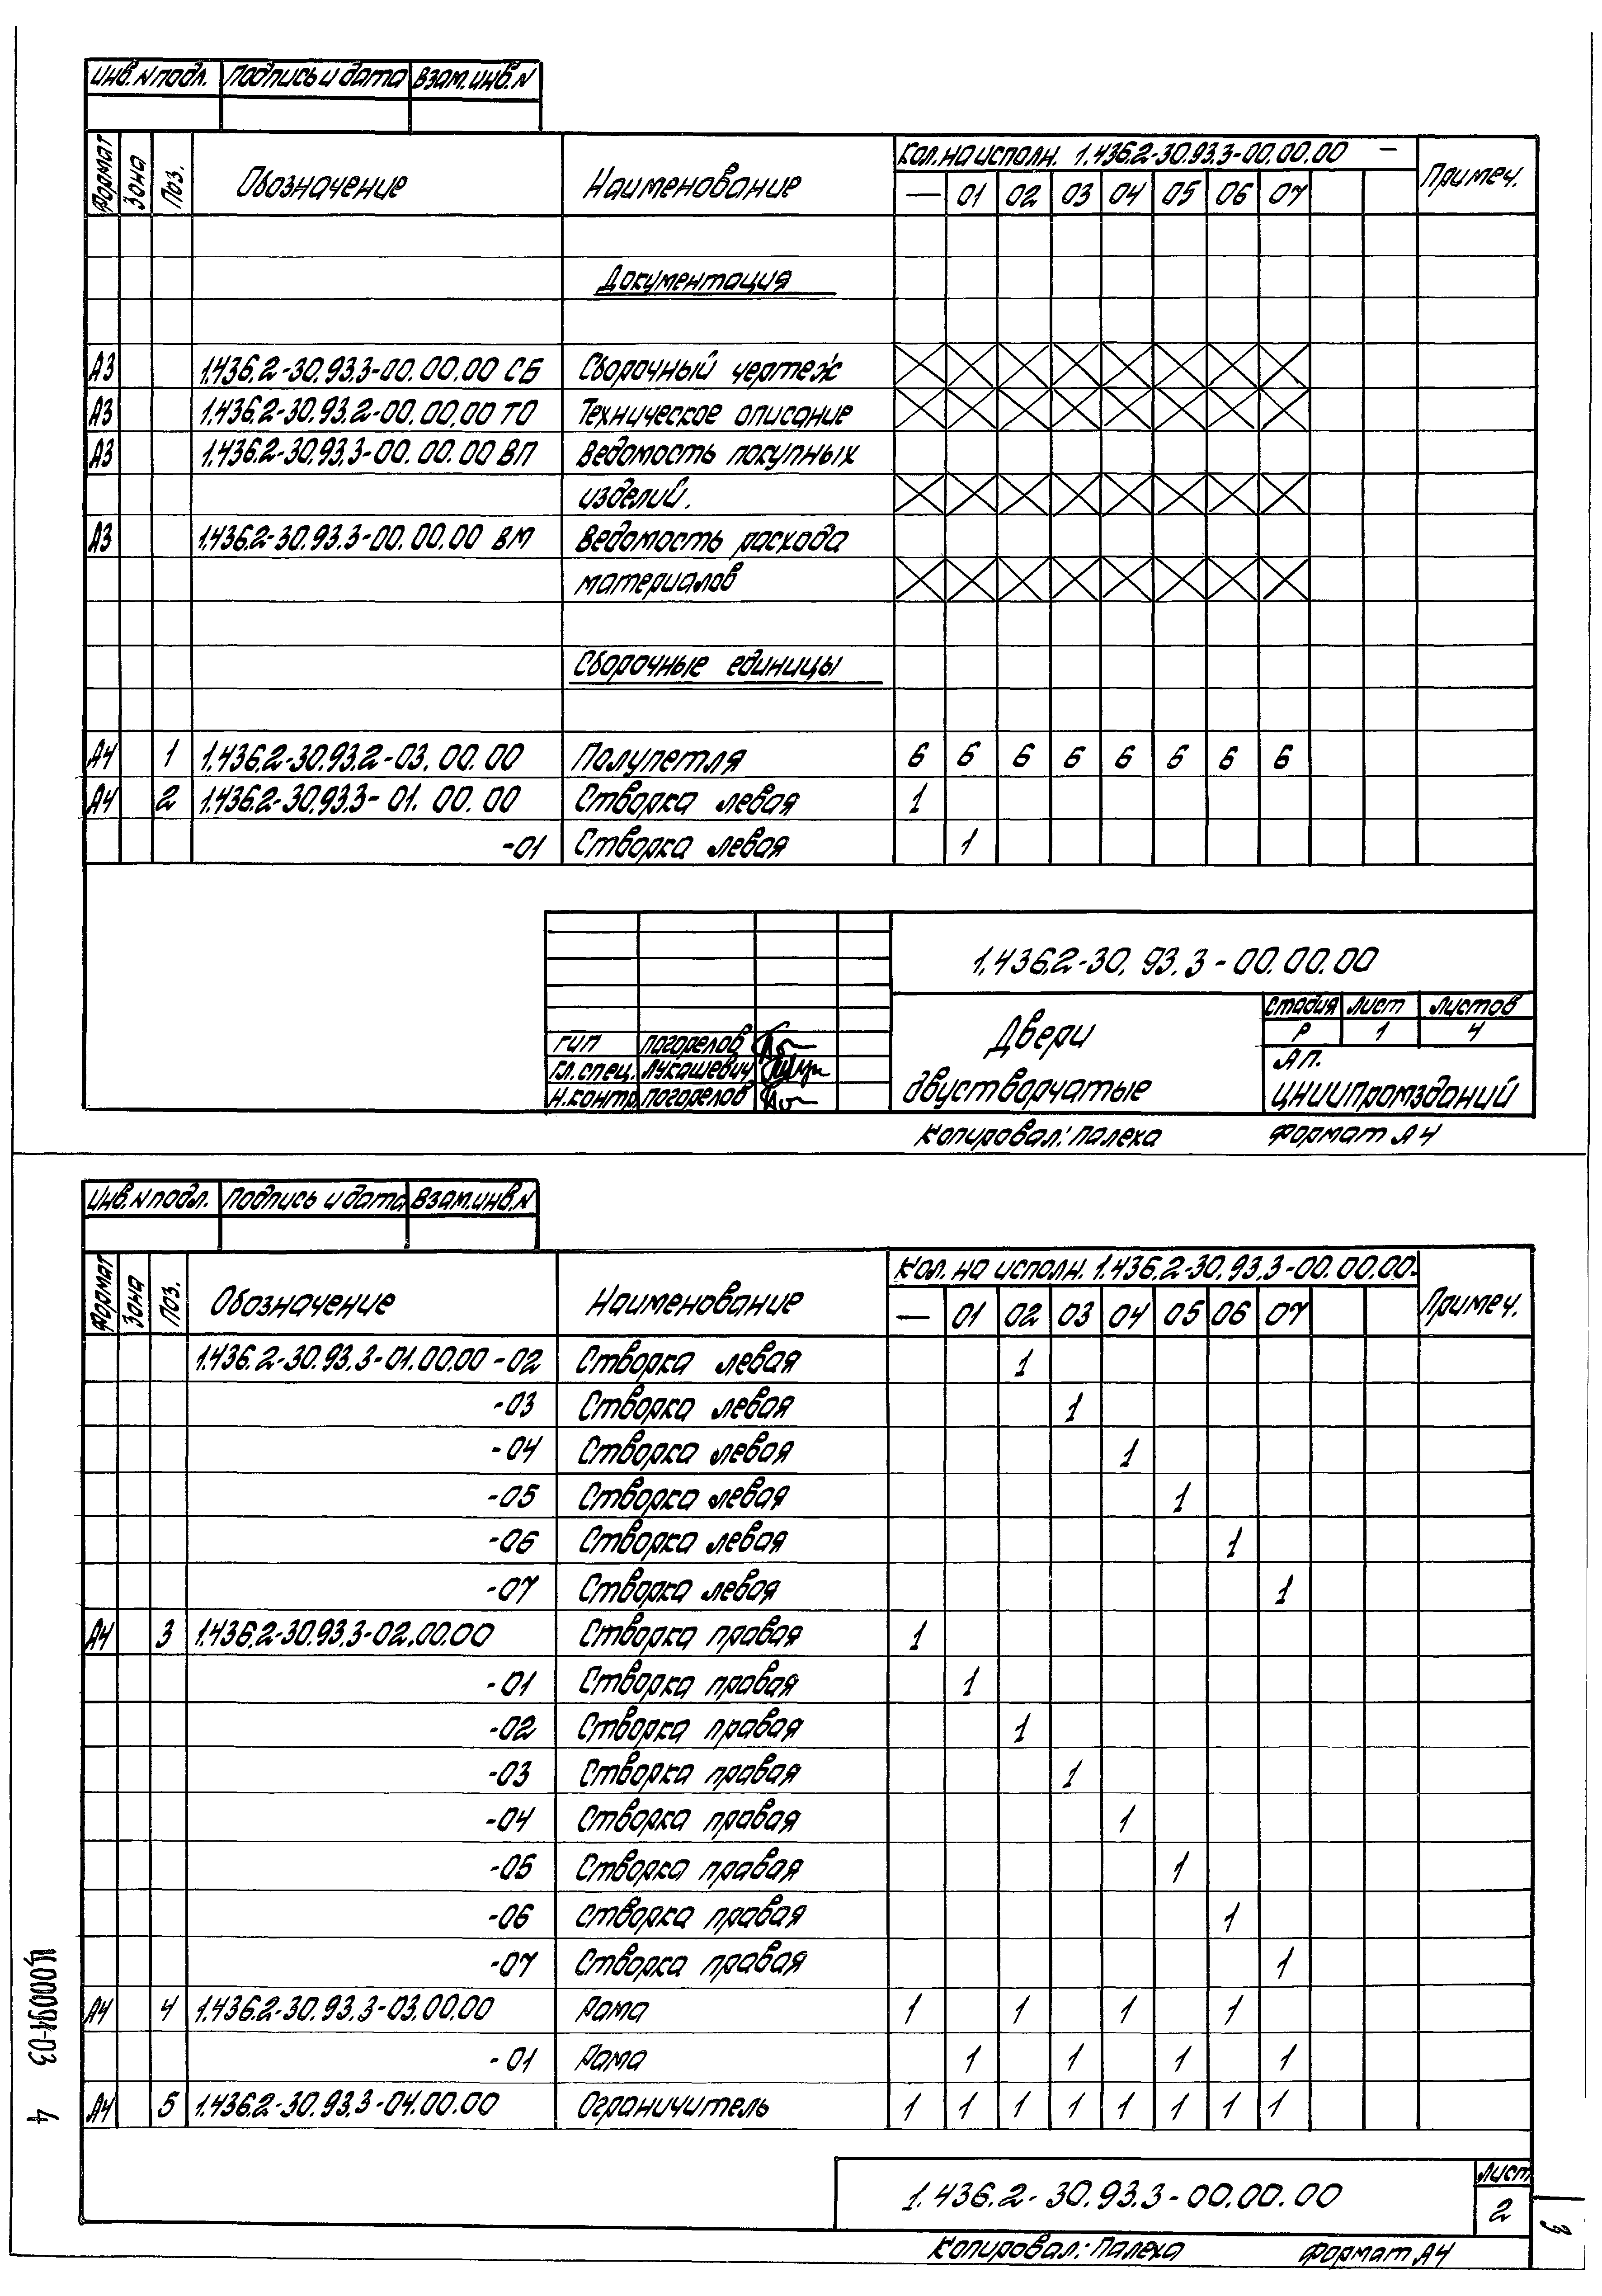 Инв.N подл. Подпись и дата Взам.инв.N
Формат Зона Поз. Обозначение Наименование Кол. на исполн. 1.436.2-30.93.3-00.00.00 — Примеч.
— 01 02 03 04 05 06 07
Документация
А3 1.436.2-30.93.3-00.00.00 СБ Сборочный чертеж
А3 1.436.2-30.93.2-00.00.00 ТО Техническое описание
А3 1.436.2-30.93.3-00.00.00 ВП Ведомость покупных
изделий.
А3 1.436.2-30.93.3-00.00.00 ВМ Ведомость расхода
материалов
Сборочные единицы
А4 1 1.436.2-30.93.2-03.00.00 Полупетля 6 6 6 6 6 6 6 6
А4 2 1.436.2-30.93.3-01.00.00 Створка левая 1
-01 Створка левая 1
1.436.2-30.93.3-00.00.00
Двери
двустворчатые
Стадия Лист Листов
Р 1 4
АП.
ЦНИИПромзданий
ГИП Погорелов
Гл.спец. Лукашевич
Н.контр. Погорелов
Копировал: Палеха Формат А4
Инв.N подл. Подпись и дата Взам.инв.N
Формат Зона Поз. Обозначение Наименование Кол. на исполн. 1.436.2-30.93.3-00.00.00- Примеч.
— 01 02 03 04 05 06 07
1.436.2-30.93.3-01.00.00 -02 Створка левая 1
-03 Створка левая 1
-04 Створка левая 1
-05 Створка левая 1
-06 Створка левая 1
-07 Створка левая 1
А4 3 1.436.2-30.93.3-02.00.00 Створка правая 1
-01 Створка правая 1
-02 Створка правая 1
-03 Створка правая 1
-04 Створка правая 1
-05 Створка правая 1
-06 Створка правая 1
-07 Створка правая 1
А4 4 1.436.2-30.93.3-03.00.00 Рама 1 1 1 1
-01 Рама 1 1 1 1
А4 5 1.436.2-30.93.3-04.00.00 Ограничитель 1 1 1 1 1 1 1 1
1.436.2-30.93.3-00.00.00
Лист
2
Копировал: Палеха Формат А4
Ц00094-03 4
3